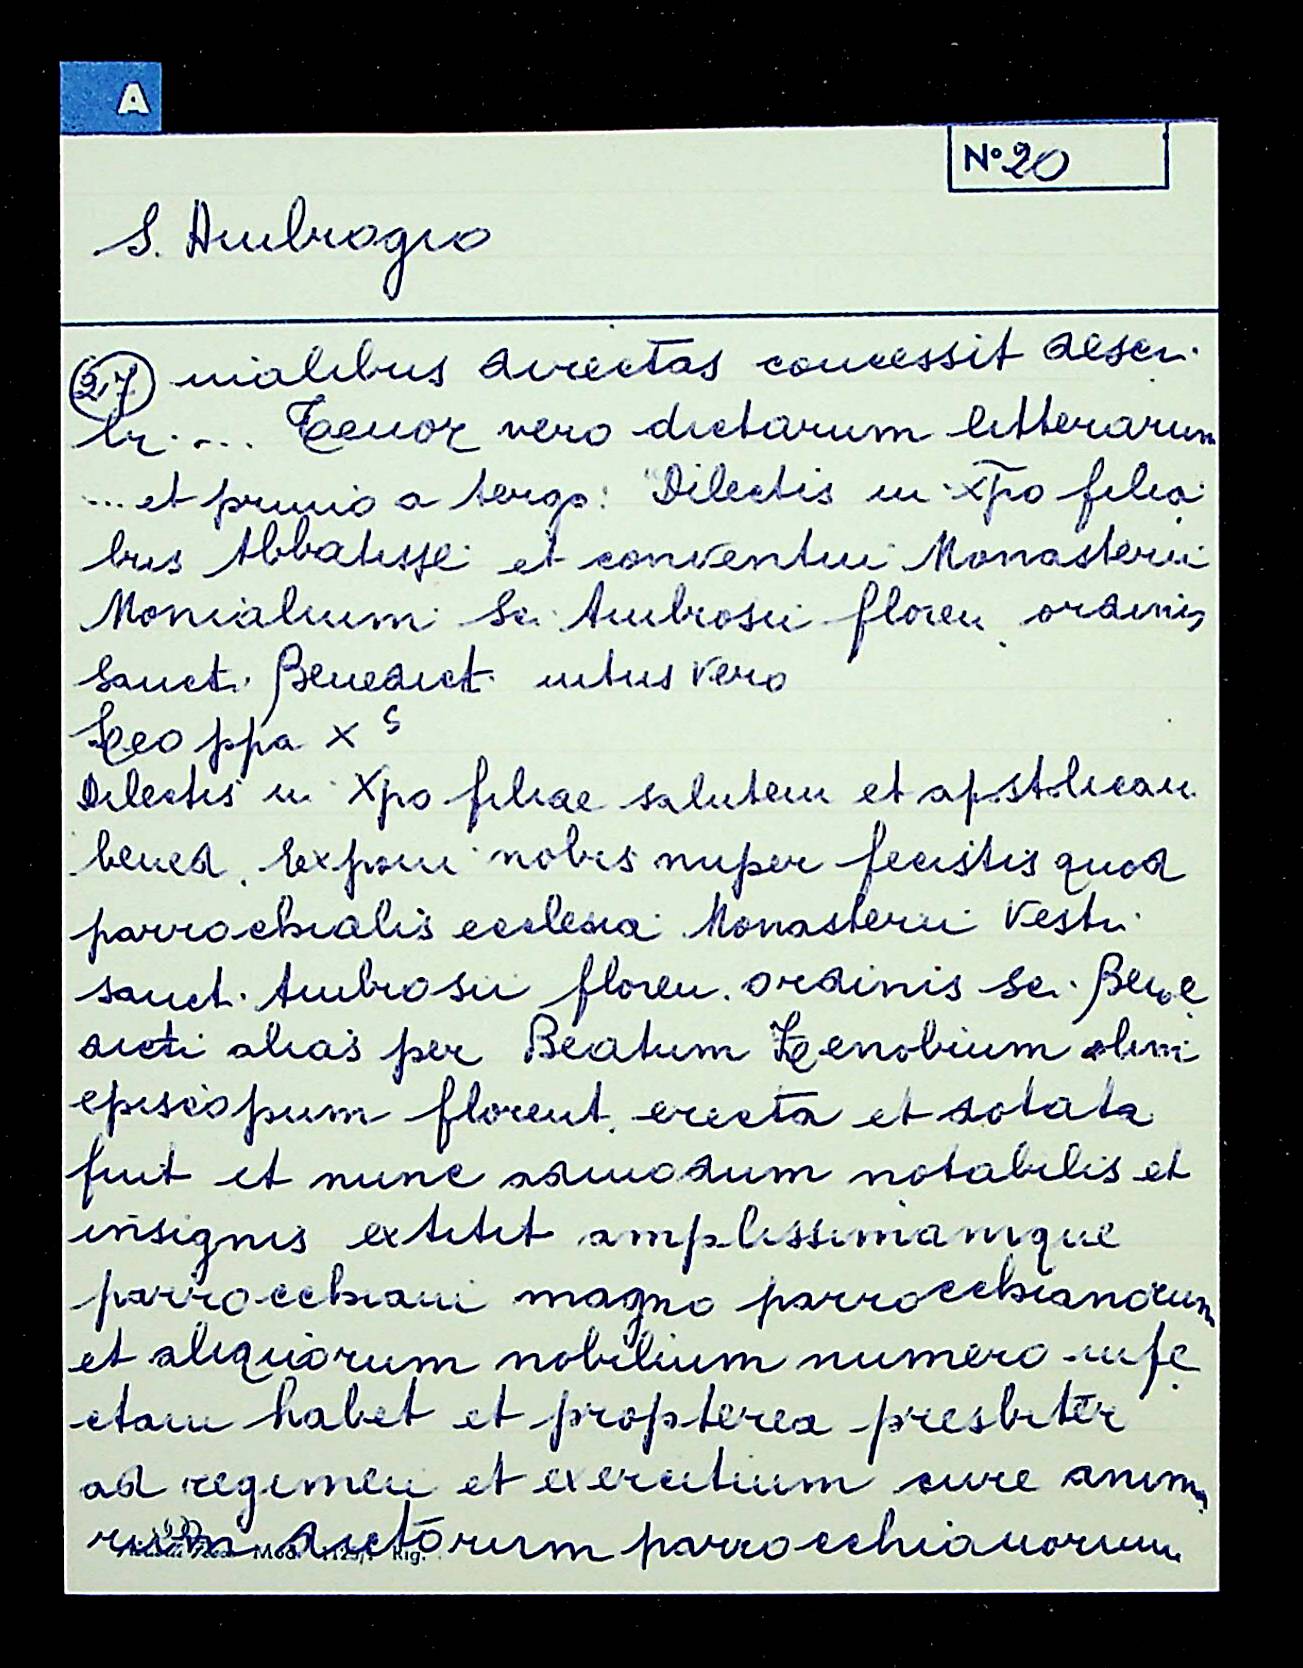 A
N° 20
S. Ambrogio
27 nialibus directas concessit descri.
br. ... Tenor vero dictarum litterarum
... et primo a tergo: "Dilectis in xp̄o filia
bus Abbatisse et conventui Monasterii
Monialium Sci Ambrosii floren ordinis
Sancti. Benedict. intus vero
Leo ppa X s
Dilectis in Xpo filiae salutem et apstlicam
bened. Exponi nobis nuper fecistis quod
parrochialis ecclesia Monasterii Vestri
sanct. Ambrosii floren. ordinis sci. Bene
dicti alias per Beatum Zenobium olim
episcopum florent. erecta et dotata
fuit et nunc admodum notabilis et
insignis extitit amplissimamque
parrocchiam magno parrocchianorum
et aliquorum nobilium numero infe
ctam habet et propterea presbiter
ad regimen et exercitium cure anima
rum dictorum parrocchianorum
Mod. Rig.